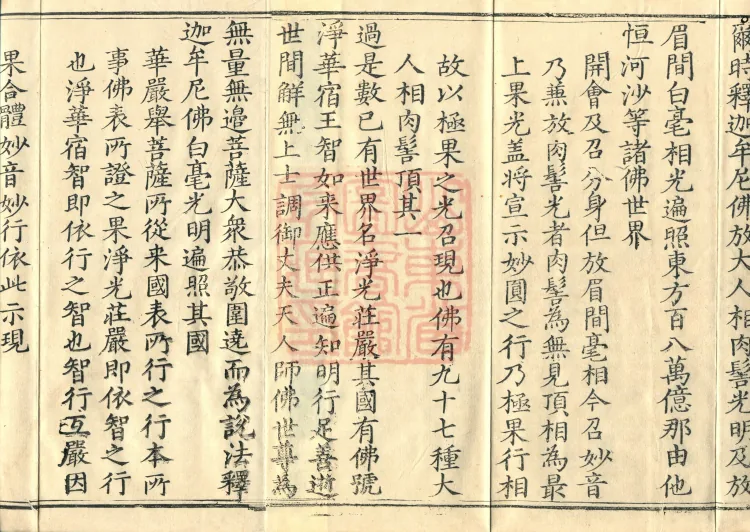 爾時釋迦牟尼佛放大人相肉髻光明及放
眉間白毫相光遍照東方百八萬億那由他
恒河沙等諸佛世界
開會及召分身但放眉間毫相今召妙音
乃兼放肉髻光者肉髻為無見頂相為最
上果光盖將宣示妙圓之行乃極果行相
故以極果之光召現也佛有九十七種大
人相肉髻頂其一
過是數已有世界名淨光莊嚴其國有佛號
淨華宿王智如来應供正遍知明行足善逝
世間解無上士調御丈夫天人師佛世尊為
無量無邉菩薩大衆恭敬圍遶而為説法釋
迦牟尼佛白毫光明遍照其國
華嚴舉菩薩所從来國表所行之行本所
事佛表所證之果淨光莊嚴即依智之行
也淨華宿智即依行之智也智行互嚴因
果合體妙音妙行依此示現